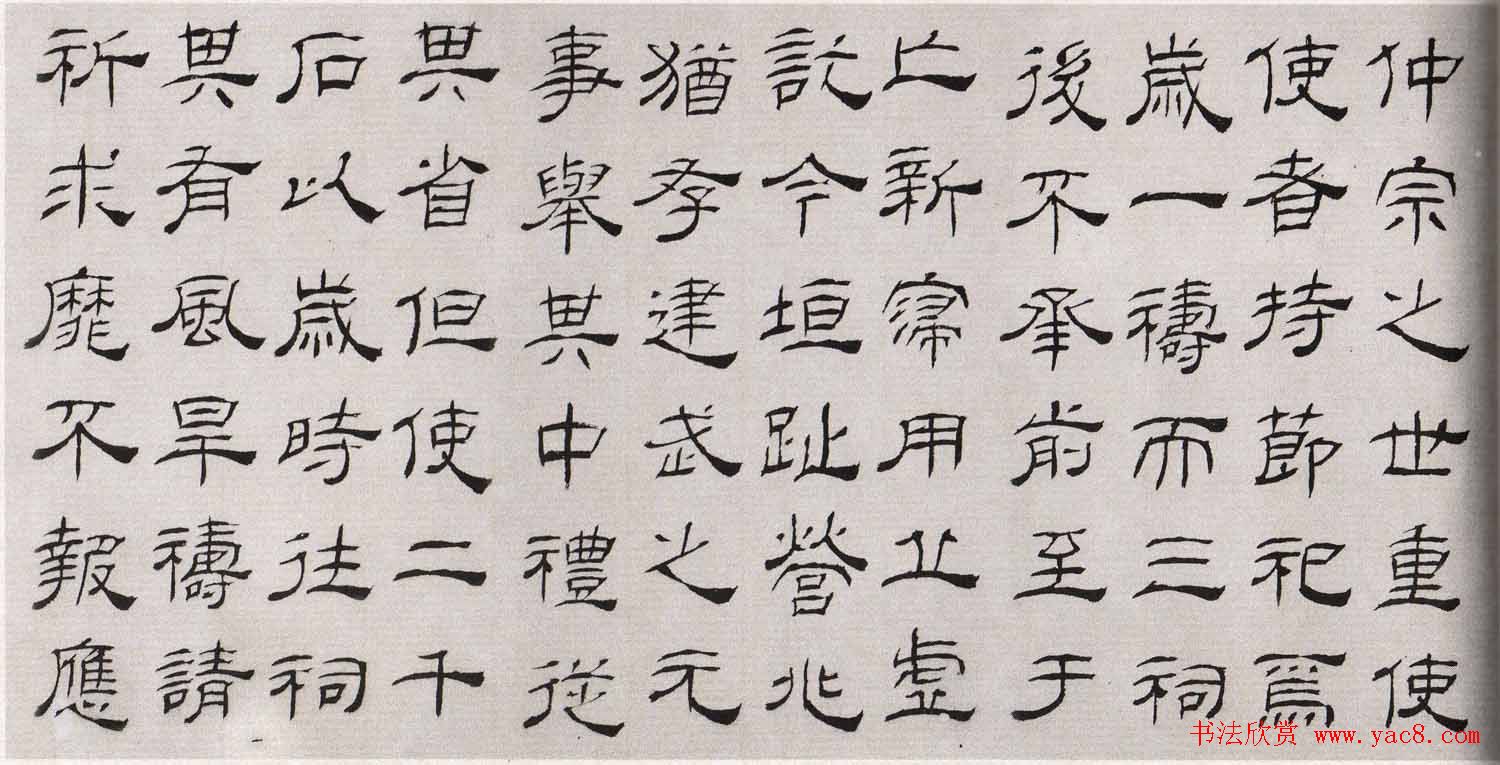 仲宗之世重使
使者持節祀焉
歲一禱而三祠
後不承前至于
亡新寖用丘虛
訖今垣趾營兆
猶存建武之元
事舉其中禮從
其省但使二千
石以歲時往祠
其有風旱禱請
祈求靡不報應
书法欣赏 www.yac8.com